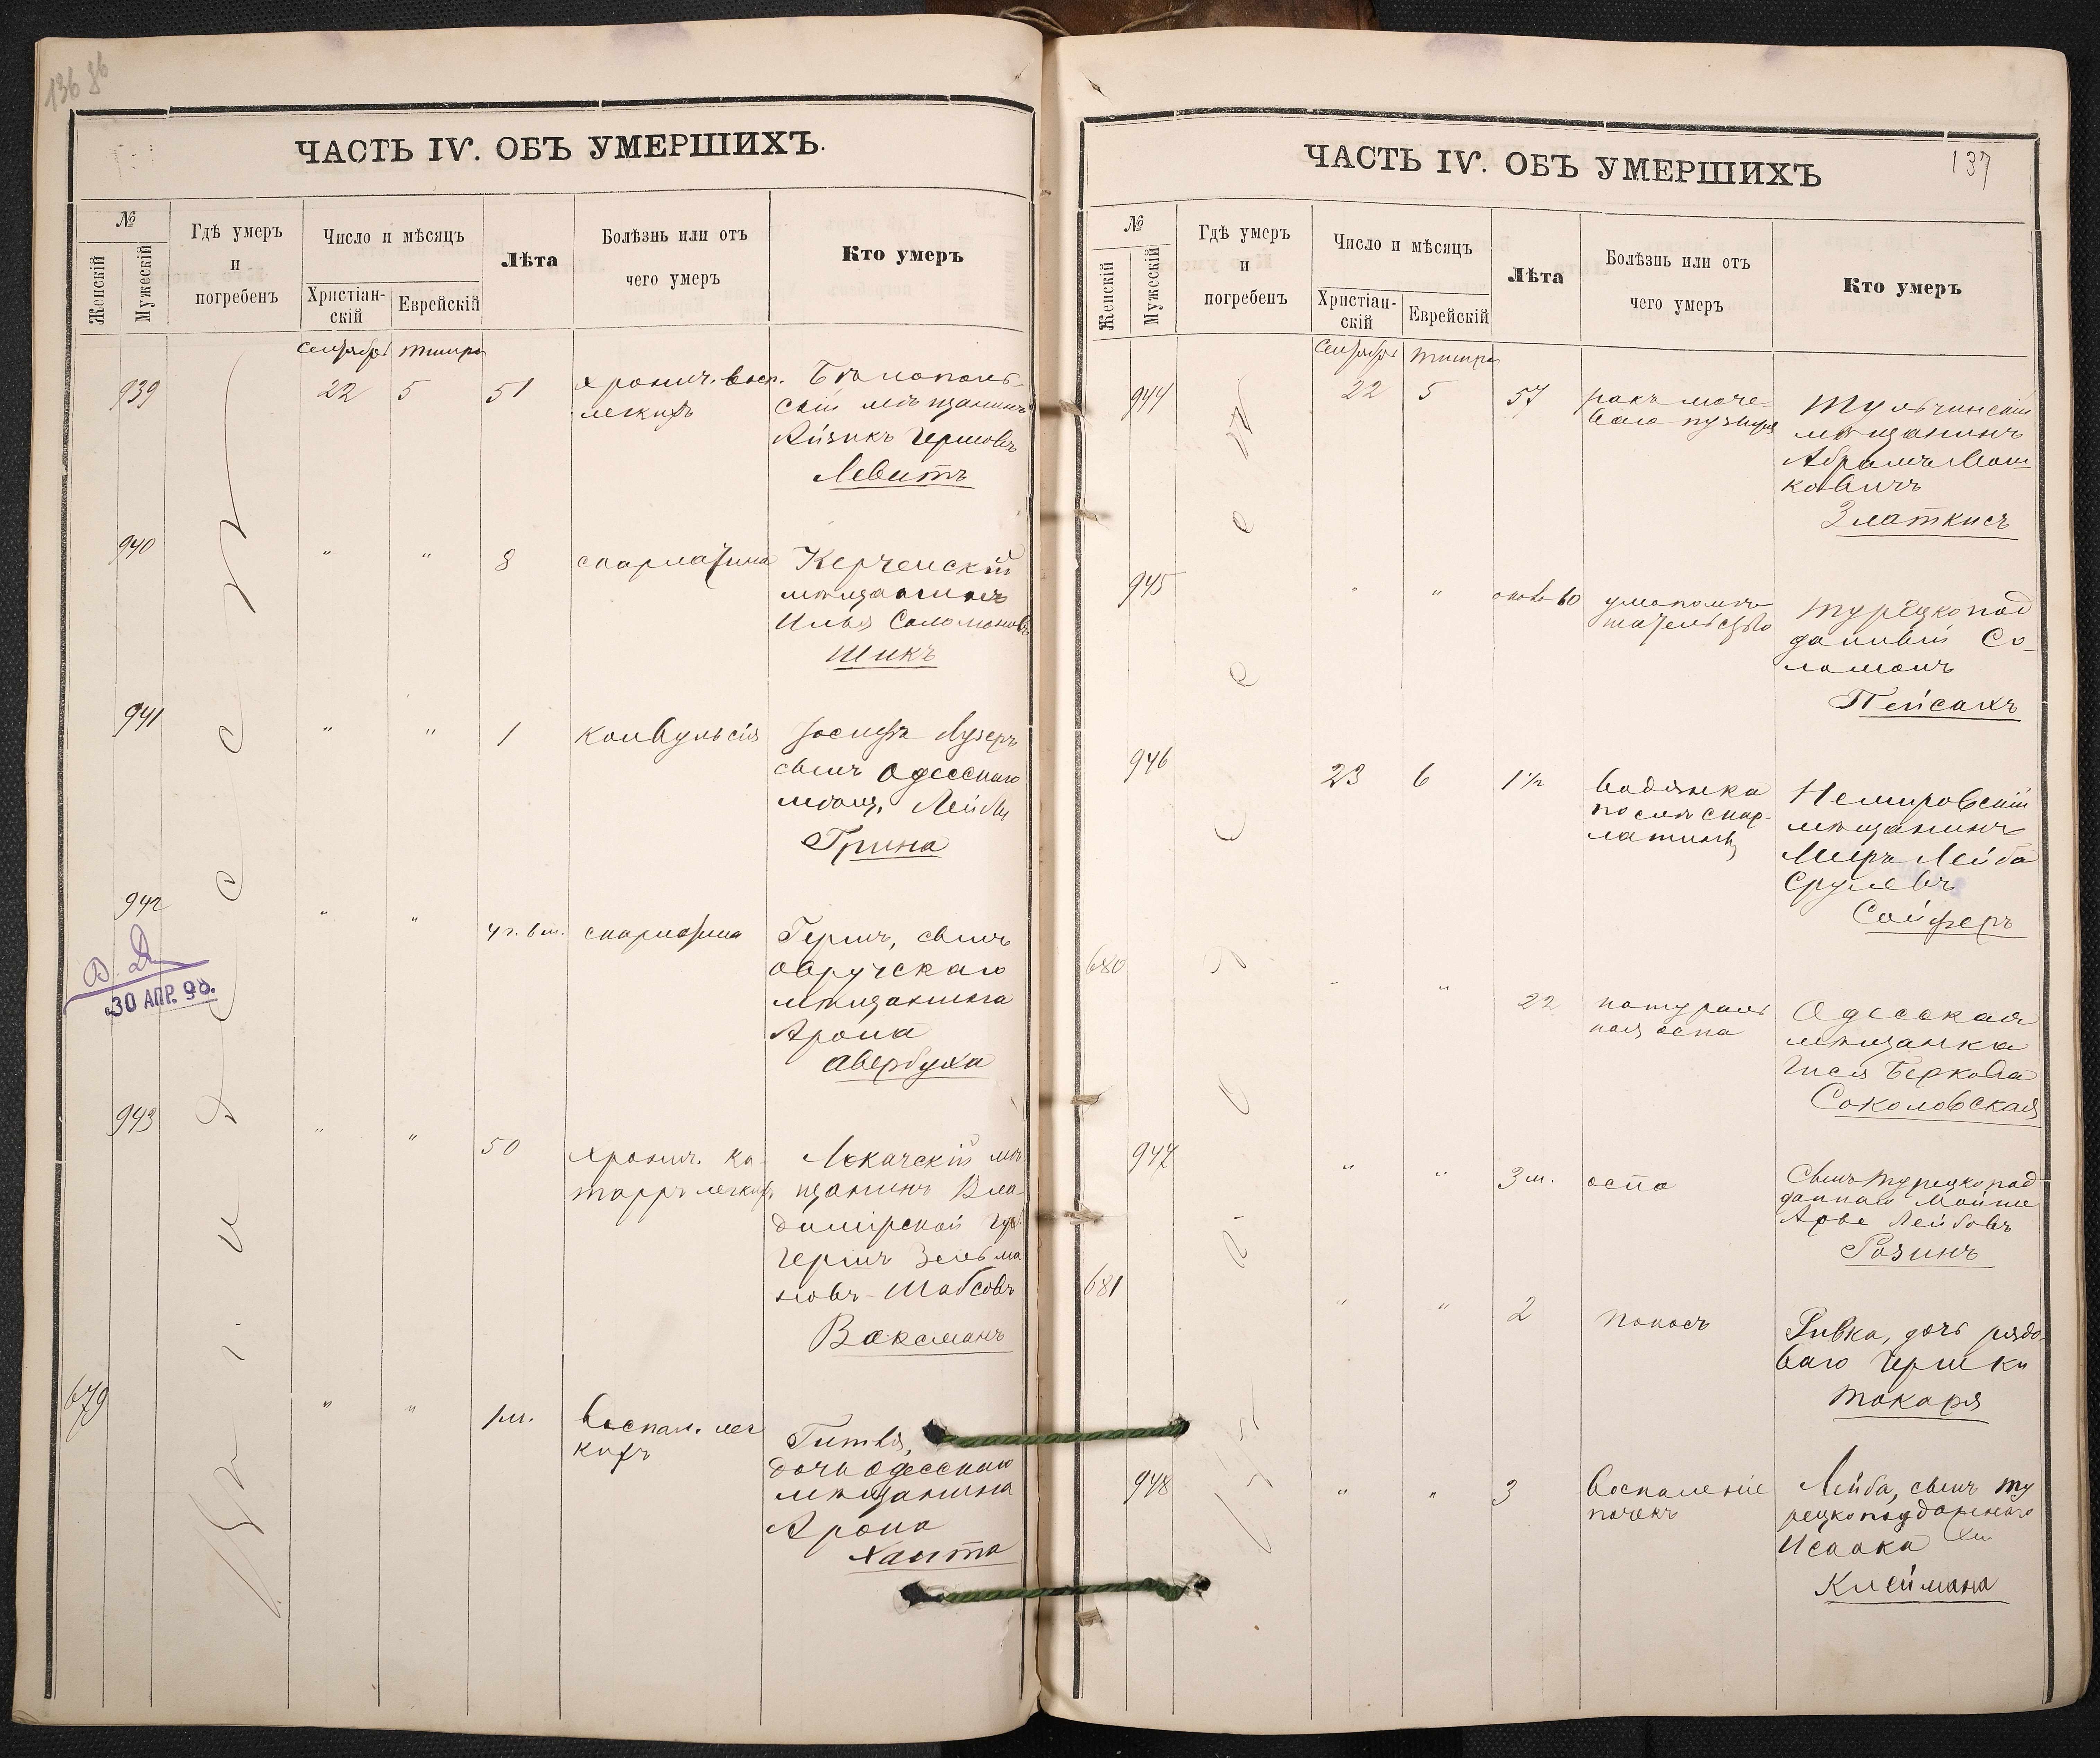 136 об
ЧАСТЬ IV. ОБЪ УМЕРШИХЪ.
№
Женскій
Мужескій
Гдѣ умеръ
и
погребенъ
Число и мѣсяцъ
Христіан-
скій
Еврейскій
Лѣта
Болѣзнь или отъ
чего умеръ
Кто умеръ
Сентября Тишри
939
22
5
51
хронич. восп.
легкихъ
Бѣлополь-
скій мѣщанинъ
Айзикъ Гершовъ
Левитъ
940
"
"
8
скарлатина
Керченскій
мѣщанинъ
Илья Соломоновъ
Шикъ
941
"
"
1
конвульсія
Іосифъ Лузеръ
сынъ Одесскаго
мѣщ. Лейбы
Грина
942
"
"
4 г. 6 м.
скарлатина
Гершъ, сынъ
овручскаго
мѣщанина
Арона
Авербуха
30 АПР. 98.
943
"
"
50
хронич. ка-
тарръ легкихъ
Локачскій мѣ-
щанинъ Вла-
димірской губ.
Гершъ Зельма
новъ-Шабсовъ
Ваксманъ
679
"
"
1 м.
воспал. лег
кихъ
Гитля,
дочь одесскаго
мѣщанина
Арона
Ханта
Одесса
ЧАСТЬ IV. ОБЪ УМЕРШИХЪ
137
№
Женскій
Мужескій
Гдѣ умеръ
и
погребенъ
Число и мѣсяцъ
Христіан-
скій
Еврейскій
Лѣта
Болѣзнь или отъ
чего умеръ
Кто умеръ
Сентября Тишри
944
22
5
57
ракъ моче-
ваго пузыря
Тульчинскій
мѣщанинъ
Абрамъ Мош-
ковичъ
Златкисъ
945
"
"
около 60
умопомѣ-
шательство
Турецкопод
данный Со-
ломонъ
Пейсахъ
946
23
6
1 1/2
водянка
послѣ скар-
латины
Немировскій
мѣщанинъ
Мееръ Лейба
Срулевъ
Сойферъ
680
"
"
22
натураль
ная оспа
Одесская
мѣщанка
Гися Беркова
Соколовская
947
"
"
3 м.
оспа
Сынъ турецкопод
даннаго Мойше
Арье Лейбовъ
Розинъ
681
"
"
2
поносъ
Ривка, дочь рядо-
ваго Гершки
Токаря
948
"
"
3
воспаленіе
почекъ
Лейба, сынъ ту
рецкоподданнаго
Исаака
Клеймана